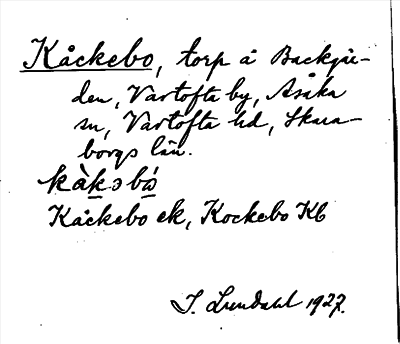 Kåckebo, torp å Backgår-
den, Vartofta by, Åsaka
sn, Vartofta hd, Skara-
borgs län.
kàkəbó
Kåckebo ek, Kockebo Kb
I. Lundahl 1927.